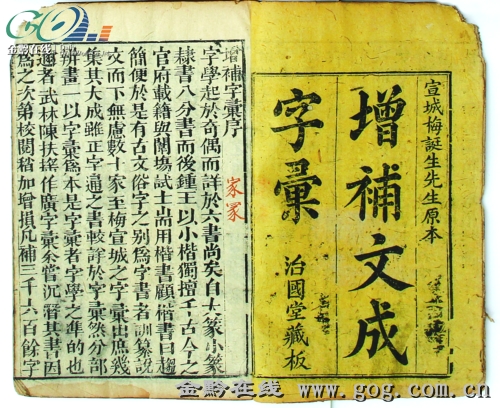 金黔在线
宣城梅誕生先生原本
增補文成
字彙
治國堂藏板
增補字彙序
字學起於奇偶而詳於六書尚矣自大篆小篆
隸書八分書而後鍾王以小楷獨擅千古今之
官府載籍與闈場試士耑用楷書顧楷書日趨
簡便於是有古文俗字之別爲字書者訓纂說
文而下無慮數十家至梅宣城之字彙出庶幾
集其大成雖正字通之書較詳於字彙然分部
辨畫一以字彙爲本是字彙者字學之準的也
邇者武林陳扶搖作廣字彙余嘗沉酣其書因
爲之次第校閱稍加增損凡補三千六百餘字
家冢
金黔在线 www.gog.com.cn